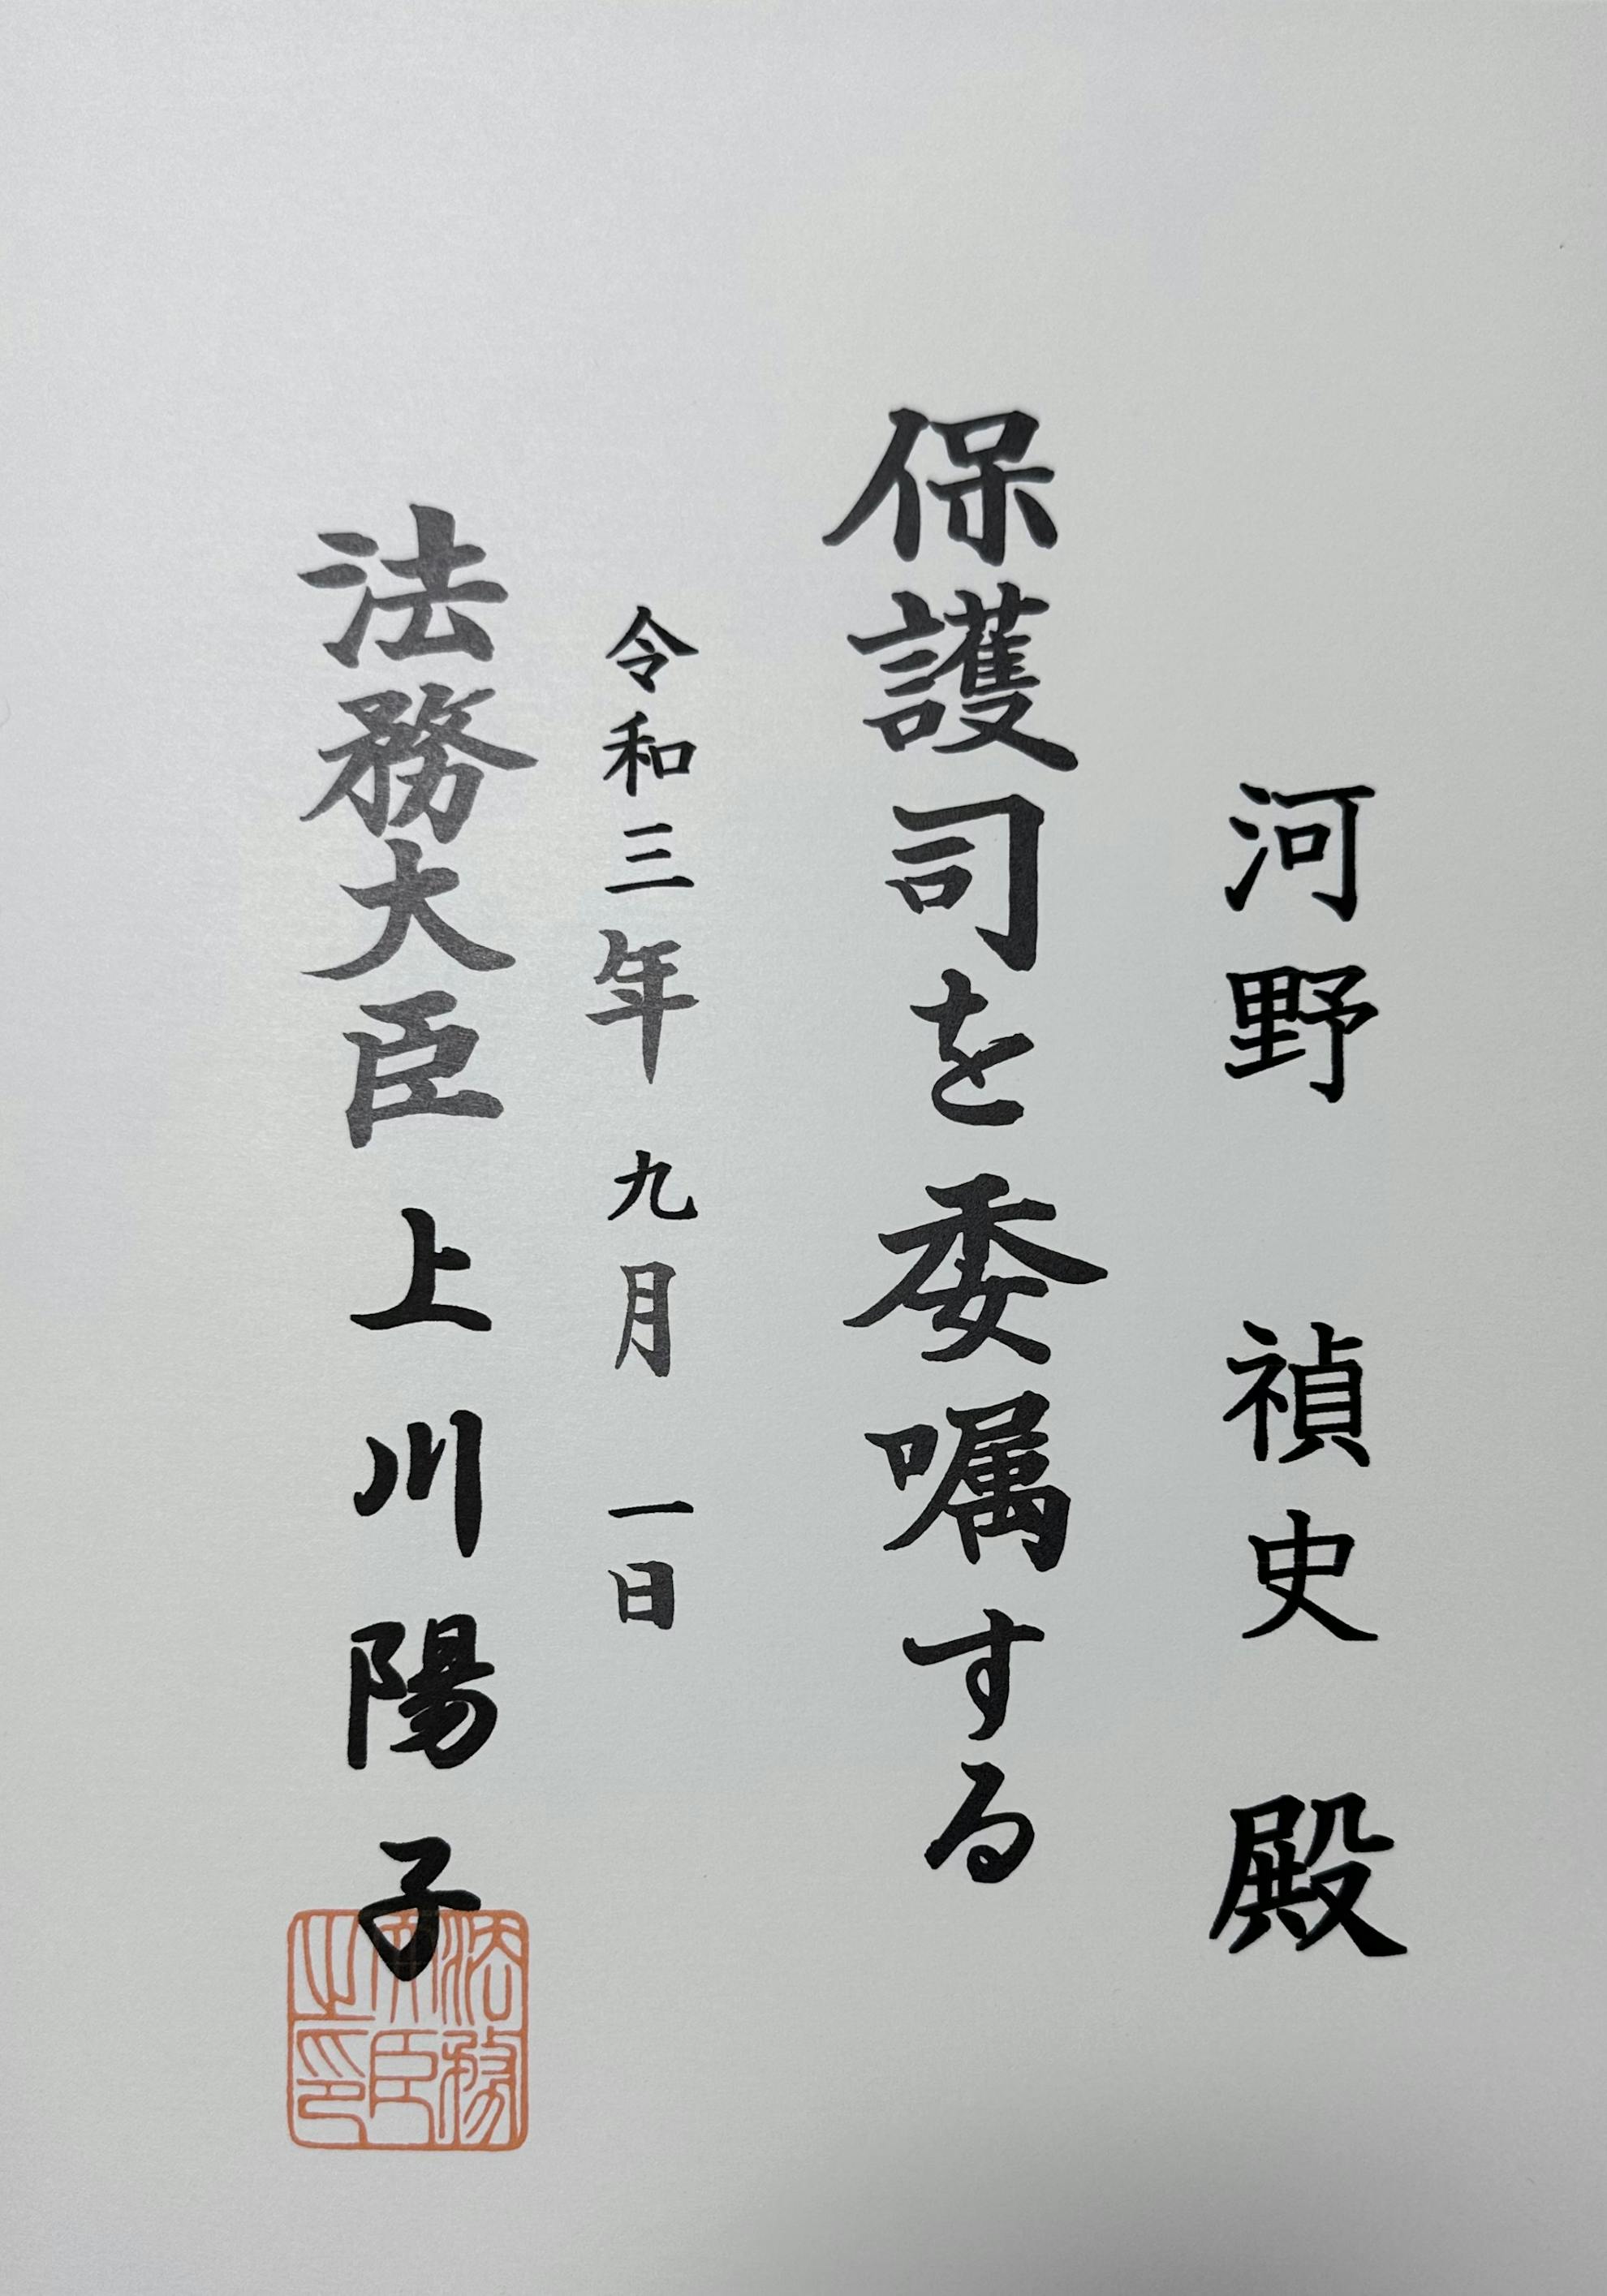 河野 禎史 殿
保護司を委嘱する
令和三年九月一日
法務大臣 上川陽子
法務大臣之印